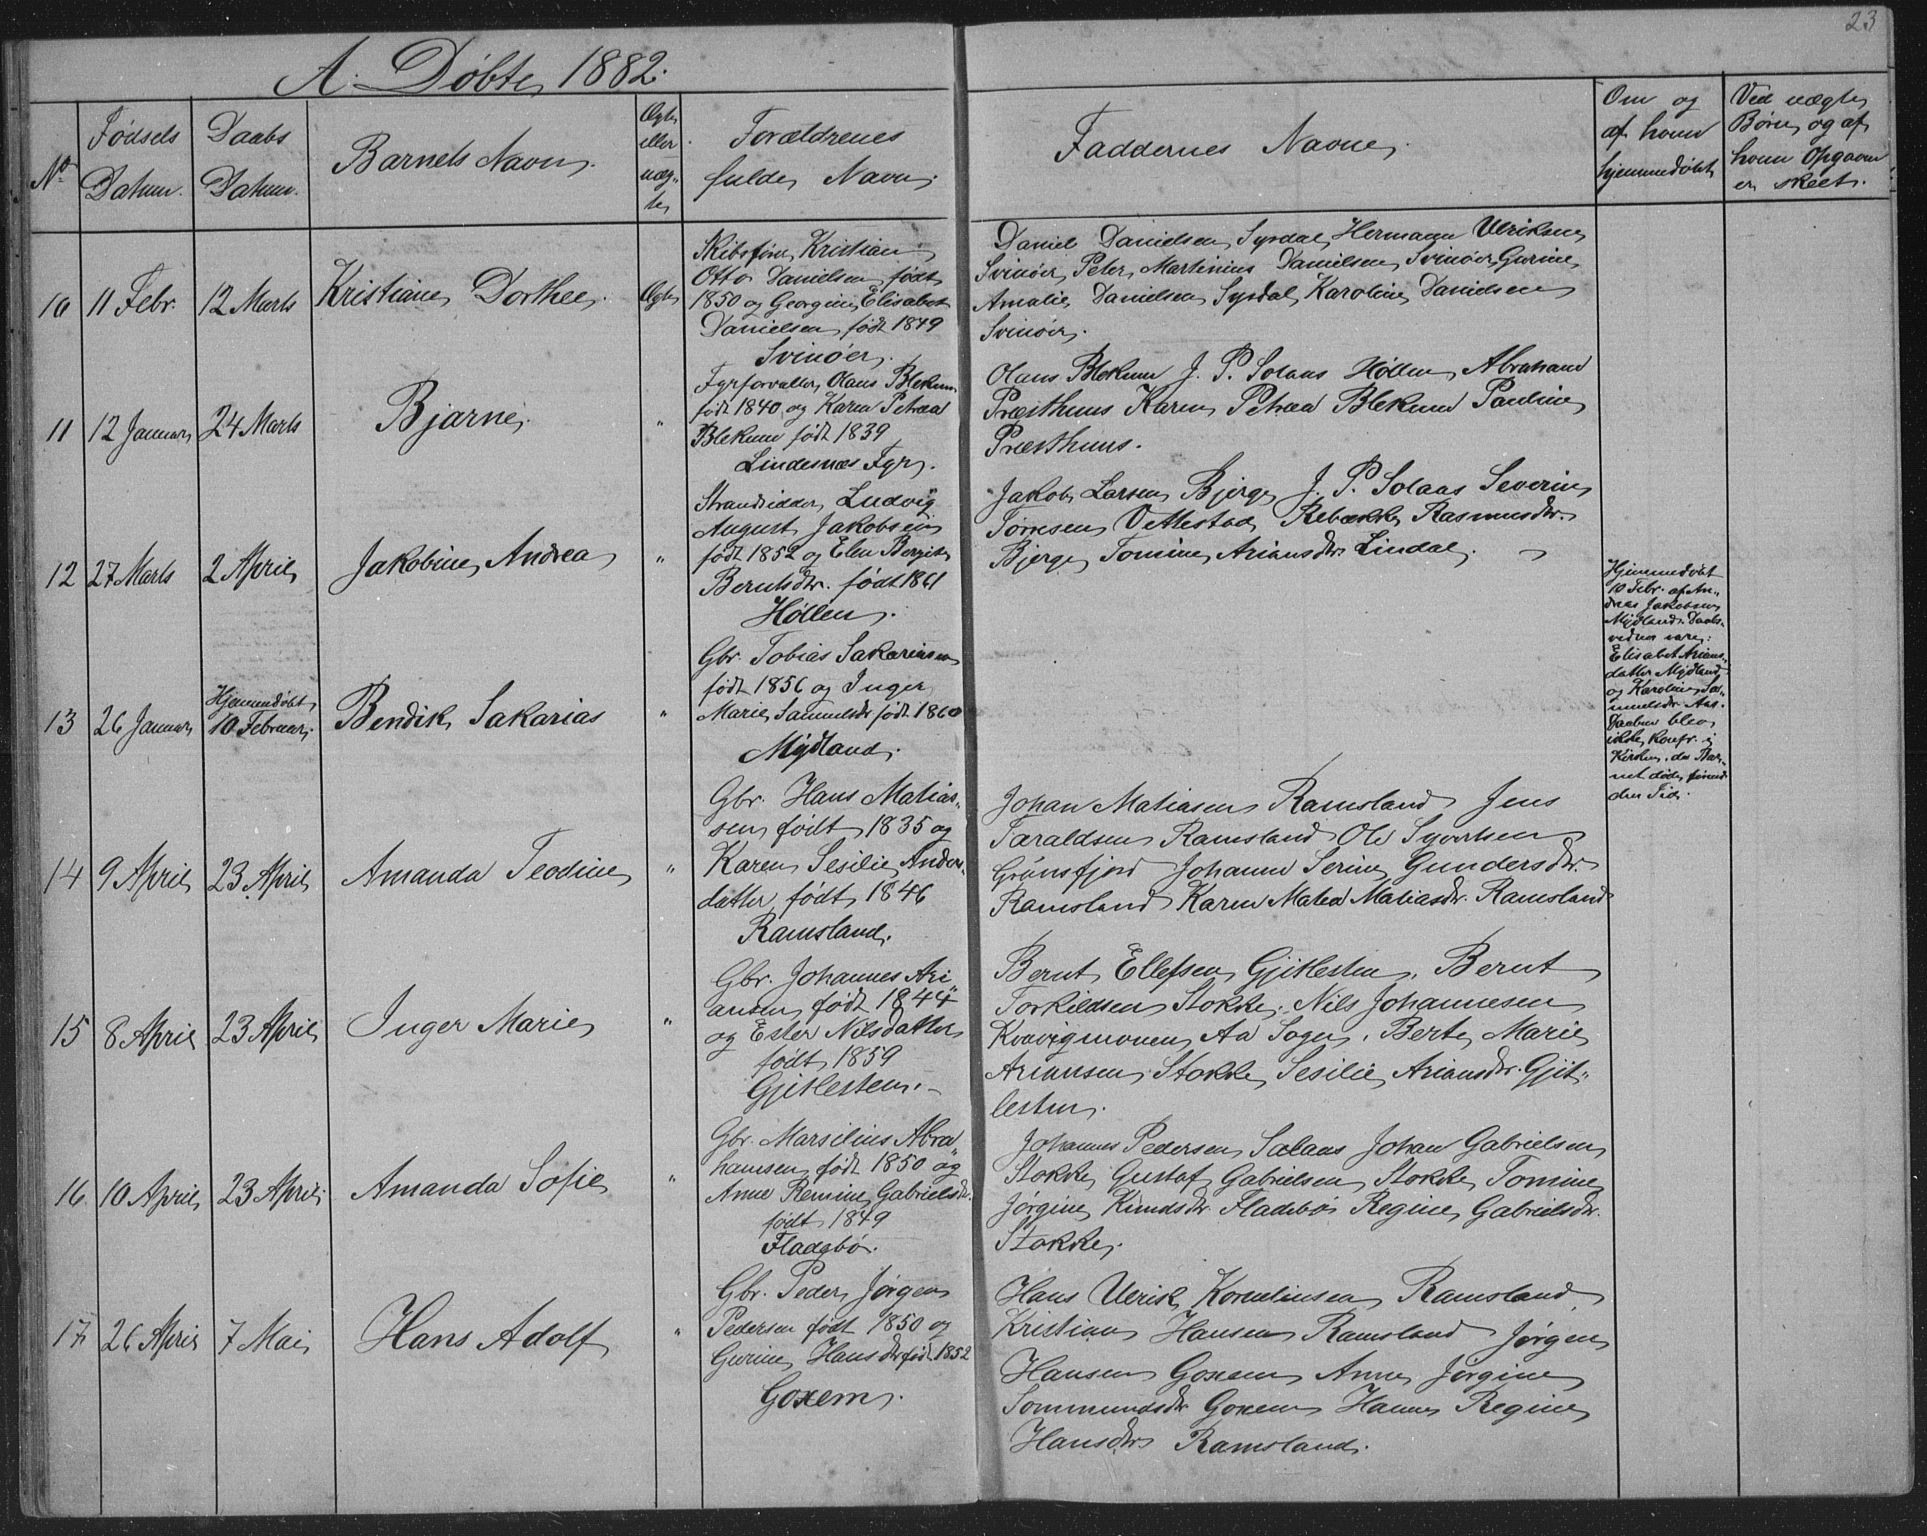 23
A. Døbte, 1882.
No
Fødsels
Datum.
Daabs
Datum.
Barnets Navn.
Ægte
eller
uæg-
te
Forældrenes
fulde Navn.
Faddernes Navne.
Om og
af hvem
hjemmedøbt
Ved uægte
Børn, og af
hvem Opgaven
er skeet.
10 11 Febr. 12 Marts Kristiane Dorthee. Ægte
Skibsfører Kristian
Otto Danielsen født
1850 og Georgine Elisabet
Danielsen født 1849
Svinøer.
Daniel Danielsen Syrdal, Hermann Ulriksen
Svinøer, Peter Martinius Danielsen, Svinøer, Gurine
Amalie Danielsen Syrdal, Karoline Danielsen
Svinøer.
11 12 Januar 24 Marts Bjarne. "
Fyrforvalter Olaus Blekum
født 1840 og Karen Petrea
Blekum født 1839
Lindesnæs Fyr.
Olaus Blekum J. P. Solaas Høllen, Abraham
Præsthuus Karen Petrea Blekum Pauline
Præsthuus.
12 27 Marts 2 April Jakobine Andrea "
Strandsidder Ludvig
August Jakobsen
født 1852 og Elen Bergite
Berntsdtr. født 1861
Høllen.
Jakob Larsen Bjerge J. P. Solaas Severin
Tørresen Vettestad Rebække Rasmusdtr.
Bjerge Tomine Ariansdtr. Lindal.
13 26 Januar Hjemmedøbt
10 Februar. Bendik Sakarias "
Gbr. Tobias Sakariasen
født 1856 og Inger
Marie Samuelsdtr født 1860
Mydland.
Hjemmedøbt
10 Febr. af An-
dreas Jakobsen
Mydland. Daabs-
vidner vare:
Elisabet Arians-
datter Mydland
og Karoline Sa-
muelsdtr Aas.
Daaben blev
ikke konfr. i
Kirken, da Bar-
net døde, førend
den Tid.
14 9 April 23 April Amanda Teodine "
Gbr. Hans Matias-
sen født 1835 og
Karen Sesilie Anders-
datter født 1846
Ramsland.
Johan Matiasen Ramsland Jens
Taraldsen Ramsland Ole Syvertsen
Grønsfjord Johanne Serine Gundersdtr.
Ramsland Karen Matea Matiasdtr. Ramsland
15 8 April 23 April Inger Marie "
Gbr. Johannes Ari-
ansen født 1844
og Ester Nilsdatter
født 1859
Gjitlesten.
Bernt Ellefsen Gjitlesten. Bernt
Torkildsen Stokke. Nils Johannesen
Kvavigmonen Aa Sogn. Berte Marie
Ariansen Stokke Sesilie Ariansdtr. Gjit-
lesten.
16 10 April 23 April. Amanda Sofie "
Gbr. Marsilius Abra-
hamsen født 1850 og
Anne Remine Gabrielsdtr.
født 1849
Fladebø.
Johannes Pedersen Salaas Johan Gabrielsen
Stokke Gustaf Gabrielsen Stokke Tomine
Jørgine Knudsdtr Fladebø Regine Gabrielsdtr.
Stokke.
17 26 April 7 Mai Hans Adolf "
Gbr. Peder Jørgen
Pedersen født 1850 og
Gurine Hansdtr født 1852
Goxem.
Hans Ulrik Korneliusen Ramsland
Kristian Hansen Ramsland Jørgen
Hansen Goxem Anne Jørgine
Sommundsdtr Goxem Hanne Regine
Hansdtr Ramsland.